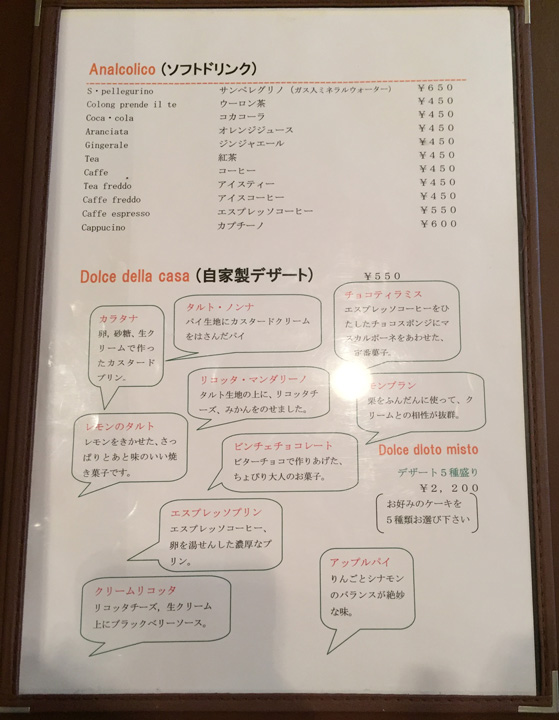 Analcolico (ソフトドリンク)
S・pellegurino サンペレグリノ (ガス入ミネラルウォーター) ¥650
Colong prende il te ウーロン茶 ¥450
Coca・cola コカコーラ ¥450
Aranciata オレンジジュース ¥450
Gingerale ジンジャエール ¥450
Tea 紅茶 ¥450
Caffe コーヒー ¥450
Tea freddo アイスティー ¥450
Caffe freddo アイスコーヒー ¥450
Caffe espresso エスプレッソコーヒー ¥550
Cappucino カプチーノ ¥600
Dolce della casa (自家製デザート) ¥550
カラタナ
卵、砂糖、生ク
リームで作っ
たカスタード
プリン.
タルト・ノンナ
パイ生地にカスタードクリーム
をはさんだパイ
チョコティラミス
エスプレッソコーヒーをひ
たしたチョコスポンジにマ
スカルポーネをあわせた、
定番菓子.
リコッタ・マンダリーノ
タルト生地の上に、リコッタチ
ーズ、みかんをのせました。
モンブラン
栗をふんだんに使って、ク
リームとの相性が抜群。
レモンのタルト
レモンをきかせた、さっ
ぱりとあと味のいい焼
き菓子です。
ピンチェチョコレート
ビターチョコで作りあげた、
ちょぴり大人のお菓子。
Dolce dloto misto
デザート５種盛り
¥2,200
お好みのケーキを
５種類お選び下さい
エスプレッソプリン
エスプレッソコーヒー、
卵を湯せんした濃厚なプ
リン。
アップルパイ
りんごとシナモン
のバランスが絶妙
な味。
クリームリコッタ
リコッタチーズ, 生クリーム
上にブラックベリーソース。